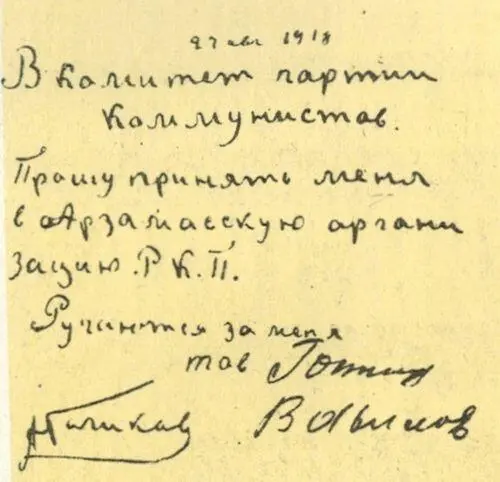 27 авг 1918
В комитет партии
коммунистов.
Прошу принять меня
в Арзамасскую аргани
зацию Р.К.П.
Ручаются за меня
тов
Вавилов
АГоликов